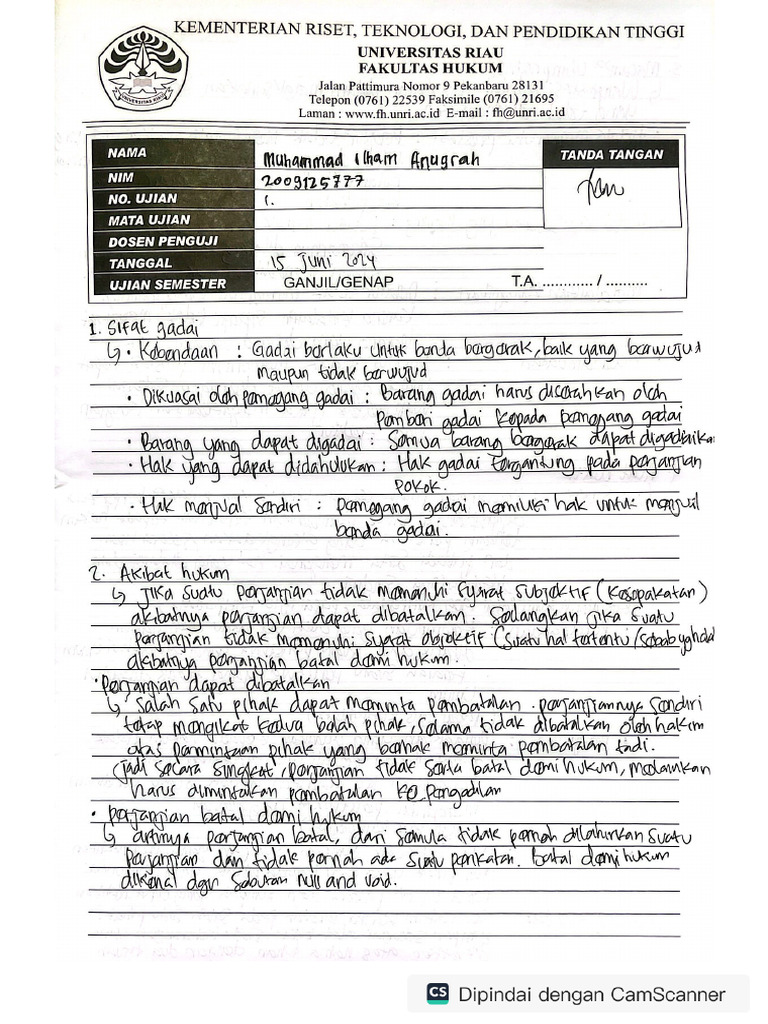 KEMENTERIAN RISET, TEKNOLOGI, DAN PENDIDIKAN TINGGI
UNIVERSITAS RIAU
FAKULTAS HUKUM
Jalan Pattimura Nomor 9 Pekanbaru 28131
Telepon (0761) 22539 Faksimile (0761) 21695
Laman : www.fh.unri.ac.id E-mail : fh@unri.ac.id
UNIVERSITAS RIAU
NAMA Muhammad Ilham Anugrah TANDA TANGAN
NIM 2009125777
NO. UJIAN 1.
MATA UJIAN
DOSEN PENGUJI
TANGGAL 15 Juni 2024
UJIAN SEMESTER GANJIL/GENAP T.A. ............ / ..........
1. Sifat gadai
↳ • Kebendaan : Gadai berlaku untuk benda bergerak, baik yang berwujud
maupun tidak berwujud
• Dikuasai oleh pemegang gadai : Barang gadai harus diserahkan oleh
Pemberi gadai kepada pemegang gadai
• Barang yang dapat digadai : Semua barang bergerak dapat digadaikan
• Hak yang dapat didahulukan : Hak gadai tergantung pada perjanjian
pokok.
• Hak menjual sendiri : pemegang gadai memiliki hak untuk menjual
benda gadai.
2. Akibat hukum
↳ Jika suatu perjanjian tidak memenuhi syarat subjektif (kesepakatan)
akibatnya perjanjian dapat dibatalkan. Sedangkan jika suatu
perjanjian tidak memenuhi syarat objektif (suatu hal tertentu / sebab yg halal
akibatnya perjanjian batal demi hukum.
• Perjanjian dapat dibatalkan
↳ Salah satu pihak dapat meminta pembatalan. perjanjiannya sendiri
tetap mengikat kedua belah pihak, selama tidak dibatalkan oleh hakim
atas permintaan pihak yang berhak meminta pembatalan tadi.
(Jadi secara singkat, perjanjian tidak serta batal demi hukum, melainkan
harus dimintakan pembatalan ke pengadilan
• perjanjian batal demi hukum
↳ artinya perjanjian batal, dari semula tidak pernah dilahirkan suatu
perjanjian dan tidak pernah ada suatu perikatan. batal demi hukum
dikenal dgn sebutan null and void.
CS Dipindai dengan CamScanner